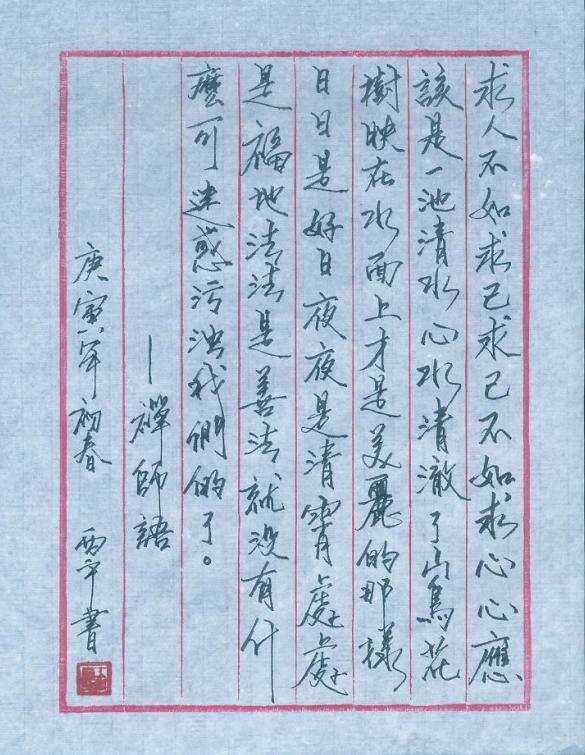 求人不如求己求己不如求心心應
該是一池清水心水清澈了山鳥花
樹映在水面上才是美麗的那樣
日日是好日夜夜是清宵處處
是福地法法是善法就没有什
麼可迷惑污浊我們的了。
—禪師語
庚寅年初春 西平書